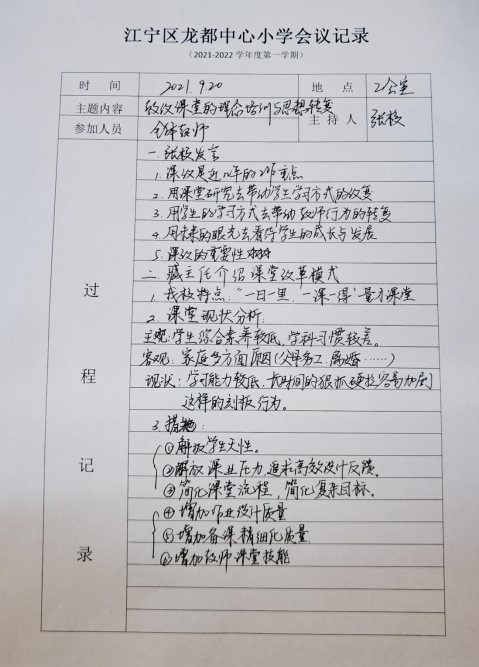 江宁区龙都中心小学会议记录
（2021-2022 学年度第一学期）
时 间 2021.9.20 地 点 2会室
主题内容 课堂的理念培训与思想转变 主 持 人 张校
参加人员 全体教师
过程记录
一. 张校发言
1. 课改是近几年的工作重点
2. 用课堂研究去带动学生学习方式的改变
3. 用学生的学习方式去带动教师行为的转变
4. 用未来的眼光去看待学生的成长与发展
5. 课改的重要性
二. 臧主任介绍课堂改革模式
1. 我校特点：“一日一里、一课一得”量力课堂
2. 课堂现状分析.
主观：学生综合素养较低，学科习惯较差。
客观：家庭多方面原因（父母务工、离婚……）
现状：学习能力较低，长时间的狠抓硬拉容易加剧
这样的刻板行为。
3. 措施：
①解放学生天性。
②解放课业压力，追求高效设计反馈。
③简化课堂流程，简化复杂目标。
④增加作业设计质量
⑤增加备课精细化质量
⑥增加教师课堂技能